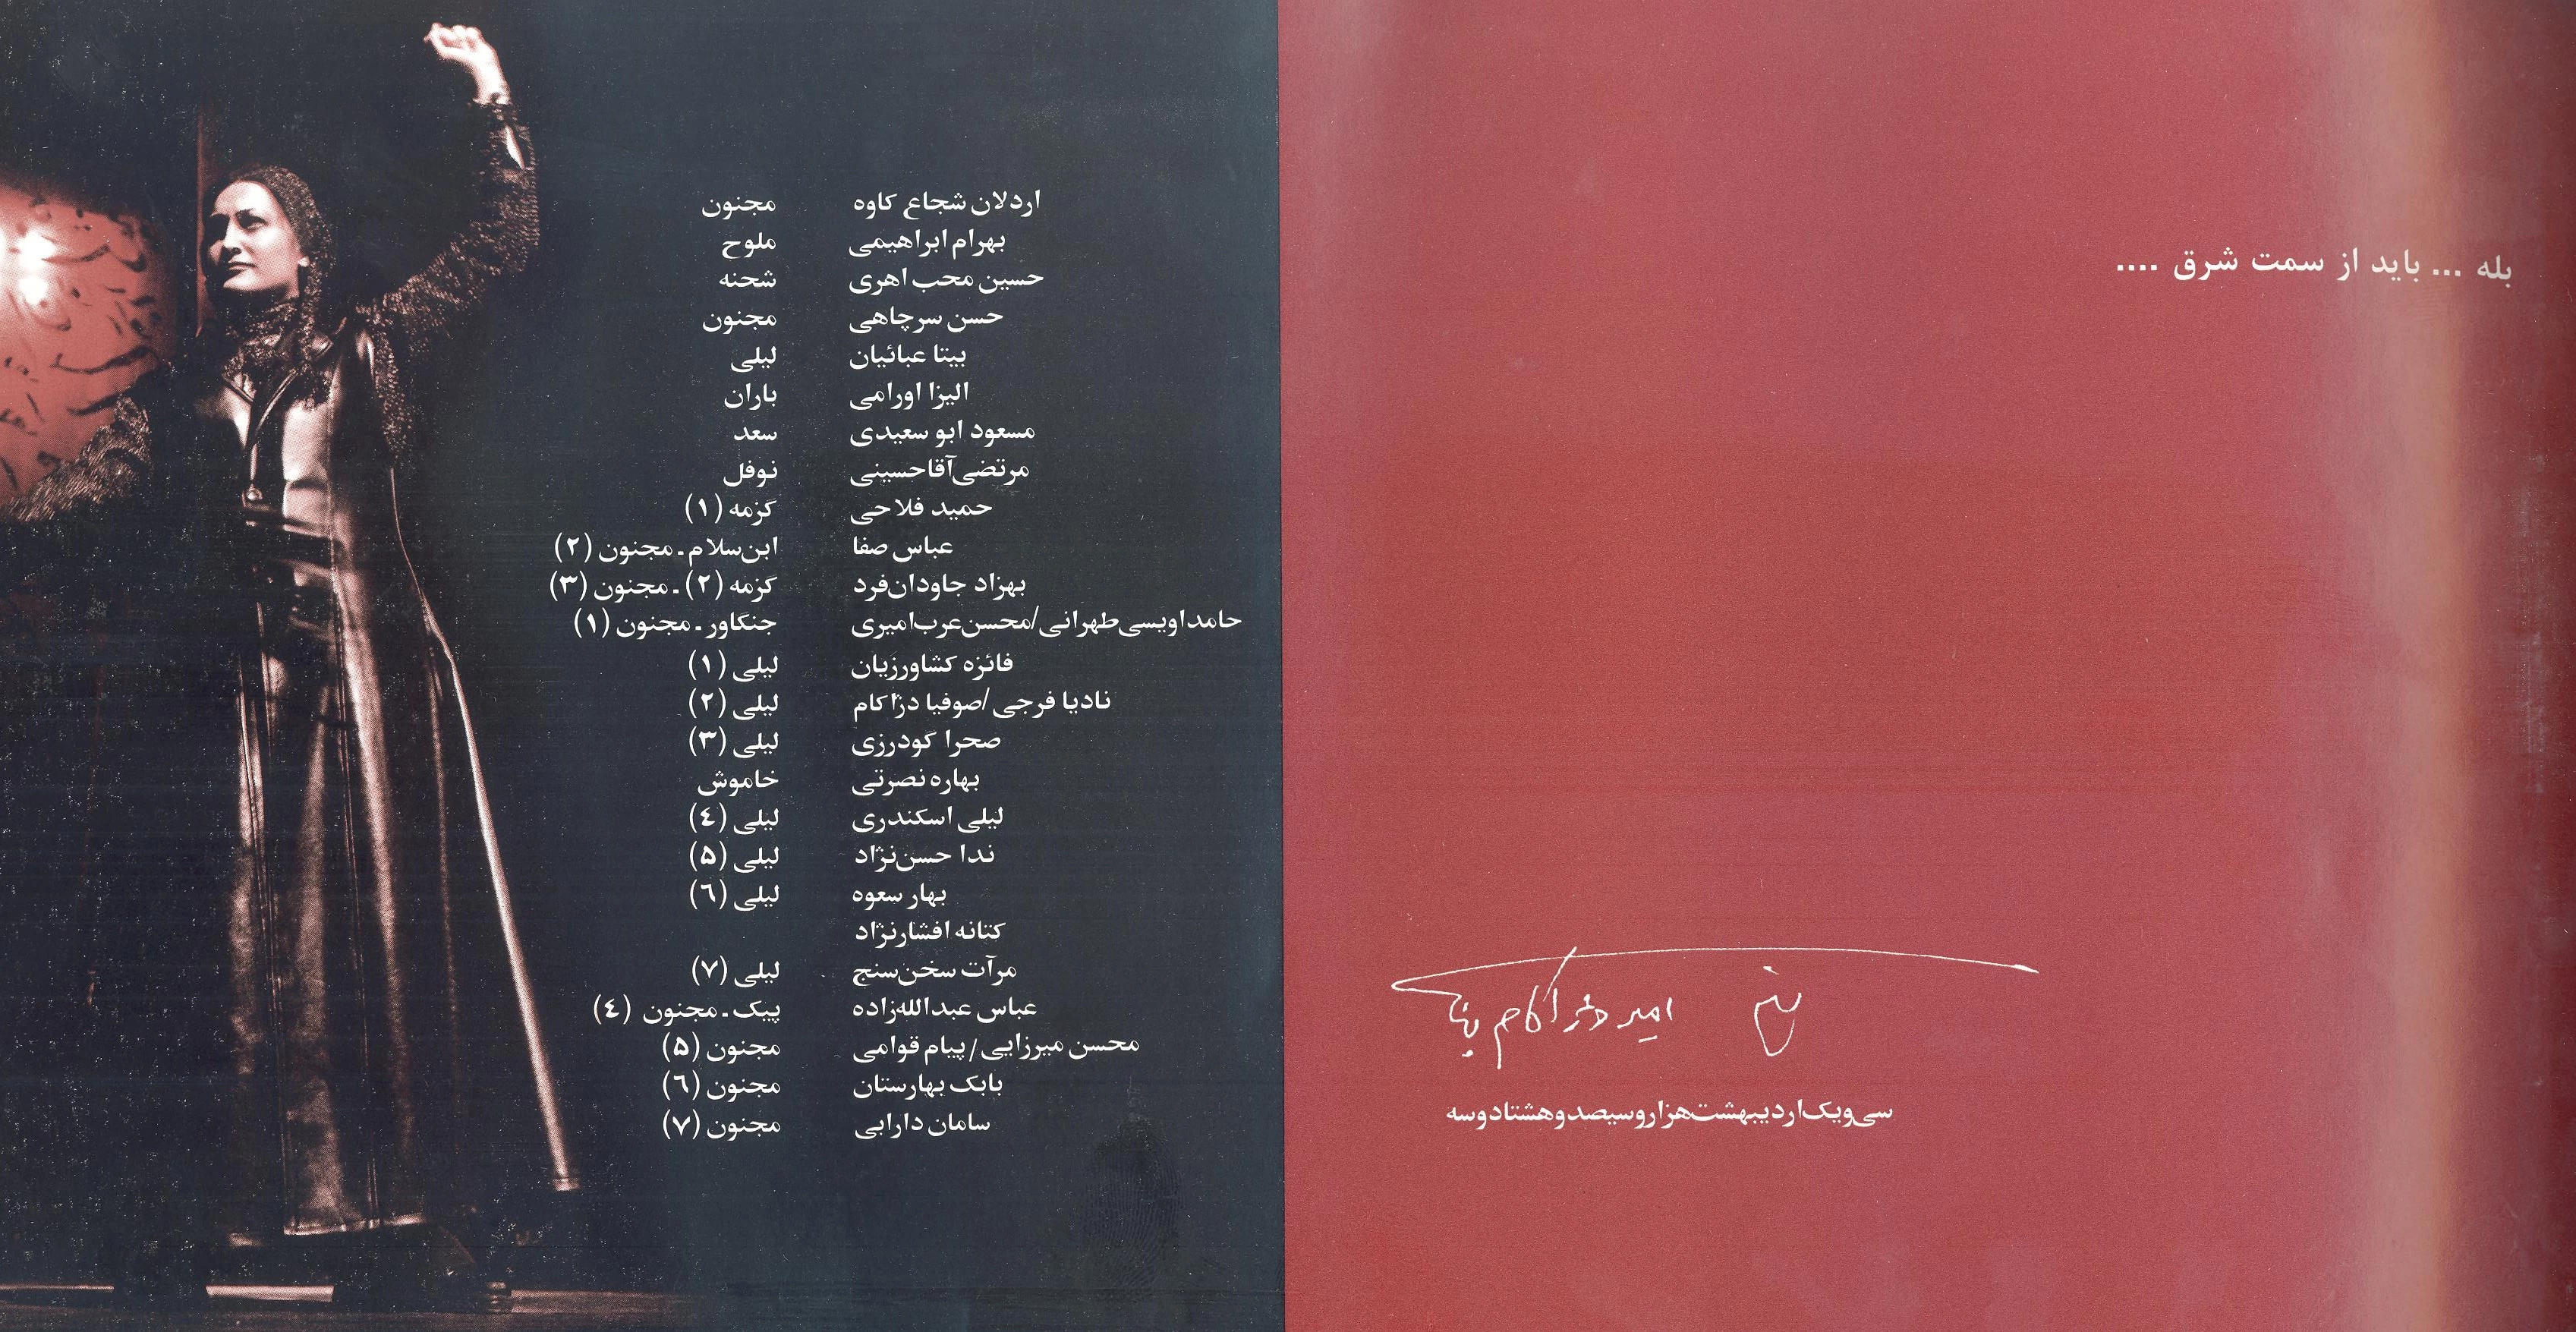 بله ... باید از سمت شرق ....
امیر دژاکام
سی‌ویک‌اردیبهشت‌هزاروسیصدوهشتادوسه
اردلان شجاع کاوه مجنون
بهرام ابراهیمی ملوح
حسین محب اهری شحنه
حسن سرچاهی مجنون
بیتا عبائیان لیلی
الیزا اورامی باران
مسعود ابو سعیدی سعد
مرتضی‌آقاحسینی نوفل
حمید فلاحی گزمه (۱)
عباس صفا ابن‌سلام ـ مجنون (۲)
بهزاد جاودان‌فرد گزمه (۲) ـ مجنون (۳)
حامداویسی‌طهرانی/محسن‌عرب‌امیری جنگاور ـ مجنون (۱)
فائزه کشاورزیان لیلی (۱)
نادیا فرجی /صوفیا دژاکام لیلی (۲)
صحرا گودرزی لیلی (۳)
بهاره نصرتی خاموش
لیلی اسکندری لیلی (٤)
ندا حسن‌نژاد لیلی (۵)
بهار سعوه لیلی (٦)
کتانه افشارنژاد
مرآت سخن‌سنج لیلی (۷)
عباس عبدالله‌زاده پیک ـ مجنون (٤)
محسن میرزایی / پیام قوامی مجنون (۵)
بابک بهارستان مجنون (٦)
سامان دارابی مجنون (۷)